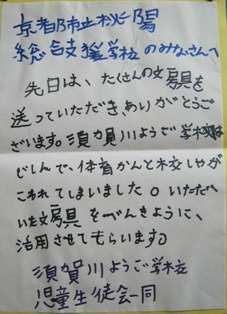 京都市立呉竹総合支援学校のみなさんへ
先日は、たくさんの文房具を
送っていただき、ありがとうご
ざいます。須賀川ようご学校は
じしんで、体育かんと校しゃが
こわれてしまいました。いただ
いた文房具をべんきょうに、
活用させてもらいます。
須賀川ようご学校
児童生徒会一同